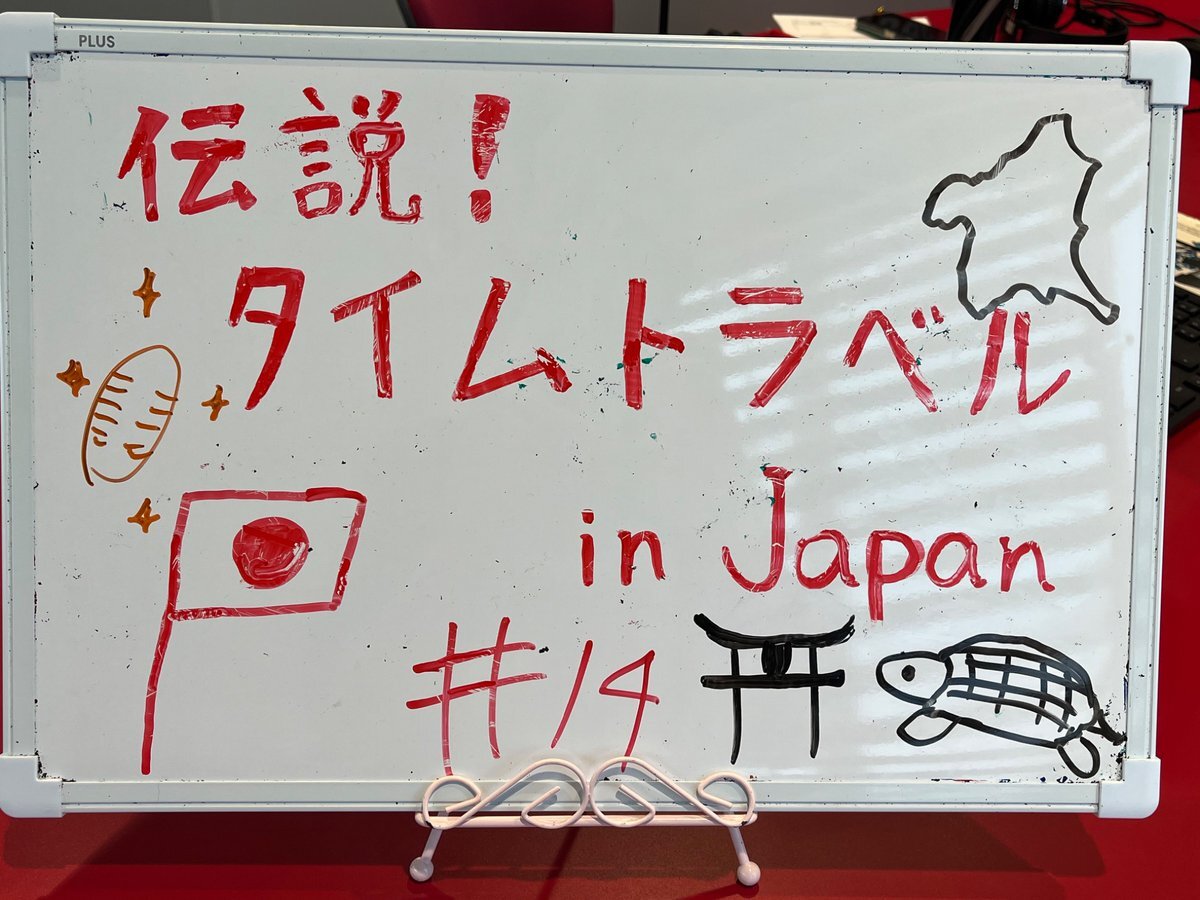 PLUS
伝説!
タイムトラベル
in Japan
#14